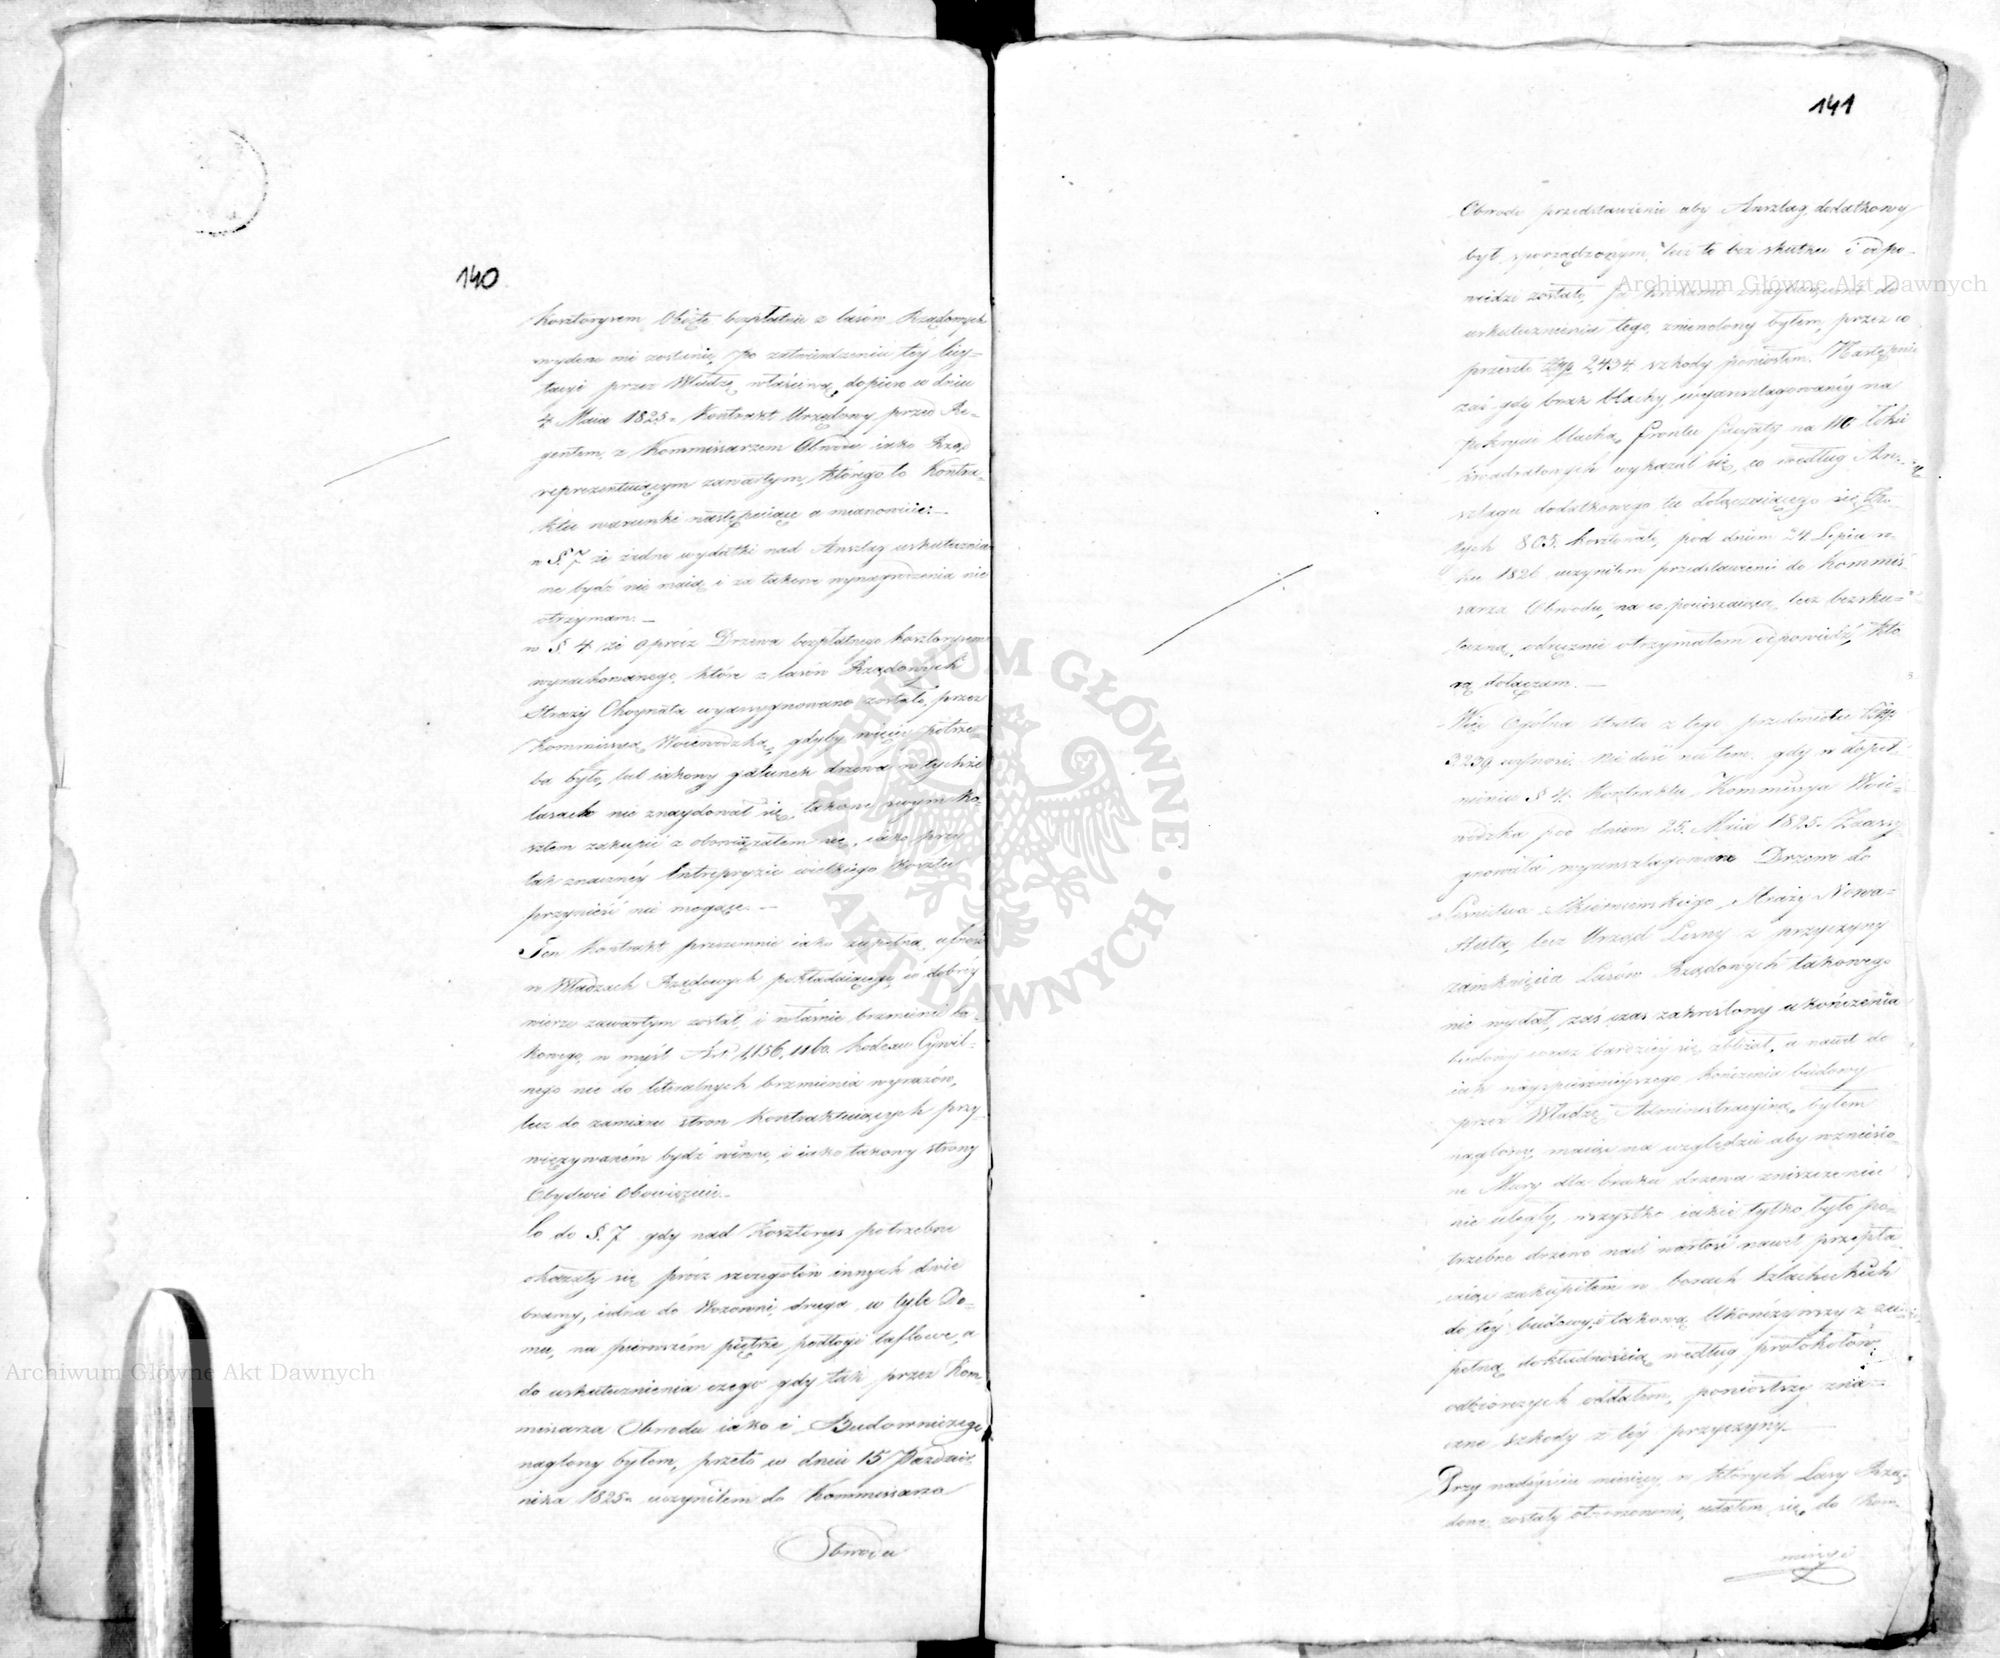 140
kosztorysem objęte bezpłatnie z lasów Rządowych
wydane mi zostanie, po zatwierdzeniu téy licy-
tacyi przez Władzę właściwą, dopiero w dniu
4 Maia 1825 r. Kontrakt Urzędowy przed Re-
gentem, z Kommissarzem Obwodu iako Rząd
reprezentuiącym zawartym, którego to Kontra-
ktu warunki następuiące a mianowicie:
w §. 7 że żadne wydatki nad Anszlag uskutecznia-
ne bydź nie maią i za takowe wynagrodzenia nie
otrzymam. —
w §. 4. że oprócz Drzewa bezpłatnego kosztorysem
wyrachowanego, które z lasów Rządowych
Straży Choynata wyassygnowane zostało, przez
Kommissyą Woiewodzką, gdyby więcéy potrze-
ba było, lub iakowy gatunek drzewa w tychże
lasach nie znaydował się, takowe swym ko-
sztem zakupić z obowiązałem się, iako przy
tak znacznéy Entrepryzie wielkiego kosztu
przynieść nie mogące. —
Ten Kontrakt przezemnie iako zupełną ufność
w Władzach Rządowych pokładaiącego, w dobréy
wierze zawartym został, i właśnie brzmienie ta-
kowego, w myśl Art: 1,156, 1160. Kodexu Cywil-
nego nie do literalnych brzmienia wyrazów,
lecz do zamiaru stron kontraktuiących przy-
więzywaném bydź winno, i iako takowy strony
Obydwie obowięzuie. —
Co do §. 7 gdy nad kosztorys potrzebne
okazały się prócz szczegółów innych dwie
bramy, iedna do Wozowni, druga w tyle Do-
mu, na pierwszém piętrze podłogi taflowe, a
do uskutecznienia czego gdy tak przez Kom-
missarza Obwodu iako i Budowniczego
naglony byłem, przeto w dniu 15 Paździer-
nika 1825 r. uczyniłem do Kommissarza
Obwodu
141
Obwodu przedstawienie aby Anszlag dodatkowy
był sporządzonym, lecz to bez skutku i odpo-
wiedzi zostało, do
uskutecznienia tego, zniewolony byłem, przez co
przeszło Złp 2,434 szkody poniosłem. Następnie
zaś gdy brak blachy, wyanszlagowanéy na
pokrycie blachą, frontu facyaty na 110 Łokci
kwadratowych wykazał się, co według An-
szlagu dodatkowego tu dołączaiącego się Zło-
tych 805. kosztowało, pod dniem 24 Lipca ro-
ku 1826 uczyniłem przedstawienie do Kommis-
sarza Obwodu, na co pocieszaiącą, lecz bezsku-
teczną, odręcznie otrzymałem odpowiedź, któ-
rą dołączam. —
Więc Ogólna strata z tego przedmiotu Złp.
3239 wynosi. Nie dość na tem, gdy w dopeł-
nieniu § 4. Kontraktu Kommissya Woie-
wodzka pod dniem 25. Maia 1825. Zaassy-
gnowała wyanszlagowane Drzewo do
Leśnictwa Skierniewskiego, Straży Nowa-
Huta, lecz Urząd Leśny z przyczyny
zamknięcia Lasów Rządowych takowego
nie wydał, zaś czas zakreślony ukończenia
budowy coraz bardziéy się zbliżał, a nawet do
iak nayspieszniéyszego kończenia budowy
przez Władzę Administracyiną byłem
naglony, maiąc na względzie aby wzniesio-
ne Mury dla braku drzewa zniszczeniu
nie uległy, wszystko iakie tylko było po-
trzebne drzewo nad wartość nawet przepła-
caiąc zakupiłem w borach Szlacheckich
do téy budowy, i takową Ukończywszy z zu-
pełną dokładnością według protokołów
odbiorczych oddałem, poniosłszy zna-
czne szkody z téy przyczyny. —
Przy nadeyściu miesięcy, w których Lasy Rzą-
dowe zostały otworzonemi, udałem się do Kom-
missyi